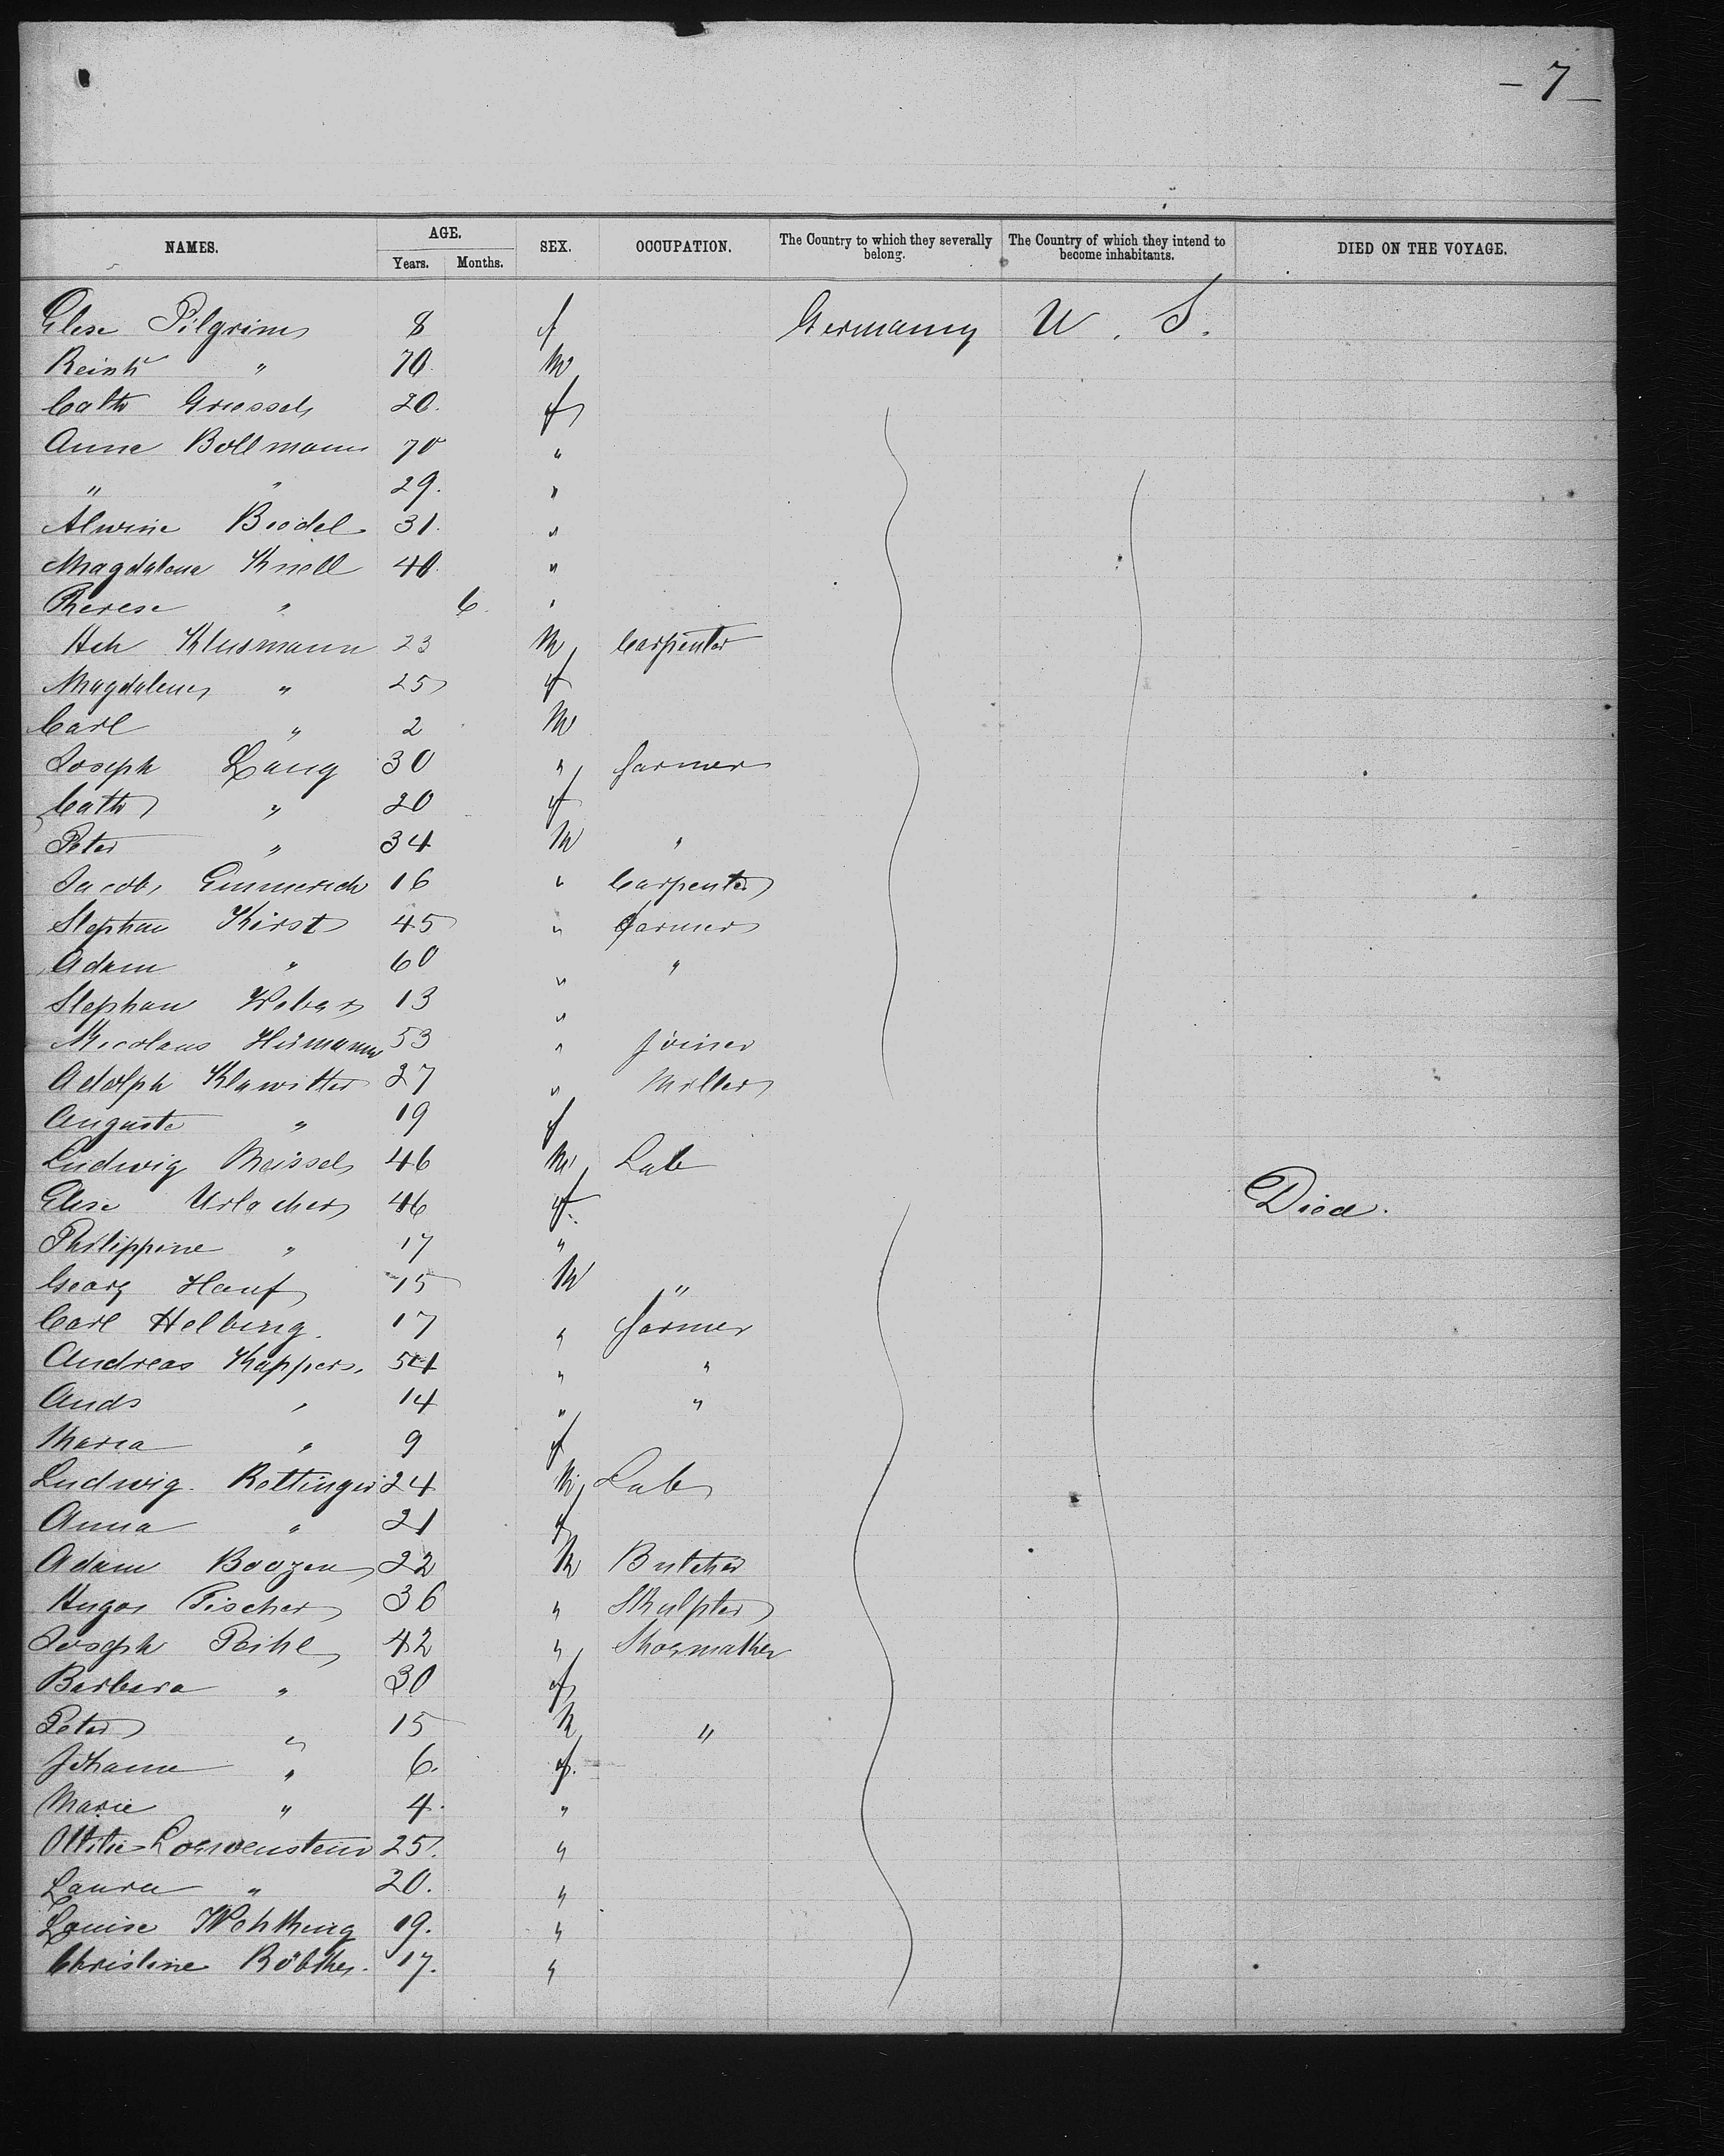 – 7 –
NAMES. AGE. SEX. OCCUPATION. The Country to which they severally belong. The Country of which they intend to become inhabitants. DIED ON THE VOYAGE.
Years. Months.
Elise Pilgrim 8 f Germany U. S.
Reinh " 70 M
Cath Griessel 20. f
Anna Bollmann 70 "
" " 29. "
Alwine Biodel 31. "
Magdalena Knell 40. "
Therese " 6. "
Hch Klusmann 23 M Carpenter
Magdalena " 25 f
Carl " 2 M
Joseph Lang 30 " farmer
Cath " 20 f
Peter " 34 M "
Jacob Emmerich 16 " Carpenter
Stephan Kirst 45 " farmer
Adam " 60 " "
Stephan Weber 13 "
Nicolaus Hermann 53 " Joiner
Adolph Klawitter 27 " Miller
Auguste " 19 f
Ludwig Meissel 46 M Lab
Elise Urlacher 46 f Died.
Philippine " 17 "
Georg Hauf 15 M "
Carl Helbing. 17 " farmer
Andreas Kappers. 54 " "
Ands " 14 " "
Maria " 9 f
Ludwig Rettinger 24 M Lab
Anna " 21 f
Adam Boozen 22 M Butcher
Hugo Fischer 36 " Skulpter
Joseph Peihl 42 " Shoemaker
Barbara " 30 f
Peter " 15 M "
Johanne " 6. f.
Marie " 4. "
Ottilie Loewenstein 25. "
Laura " 20. "
Louise Wehking 19. "
Christine Röbke. 17. "